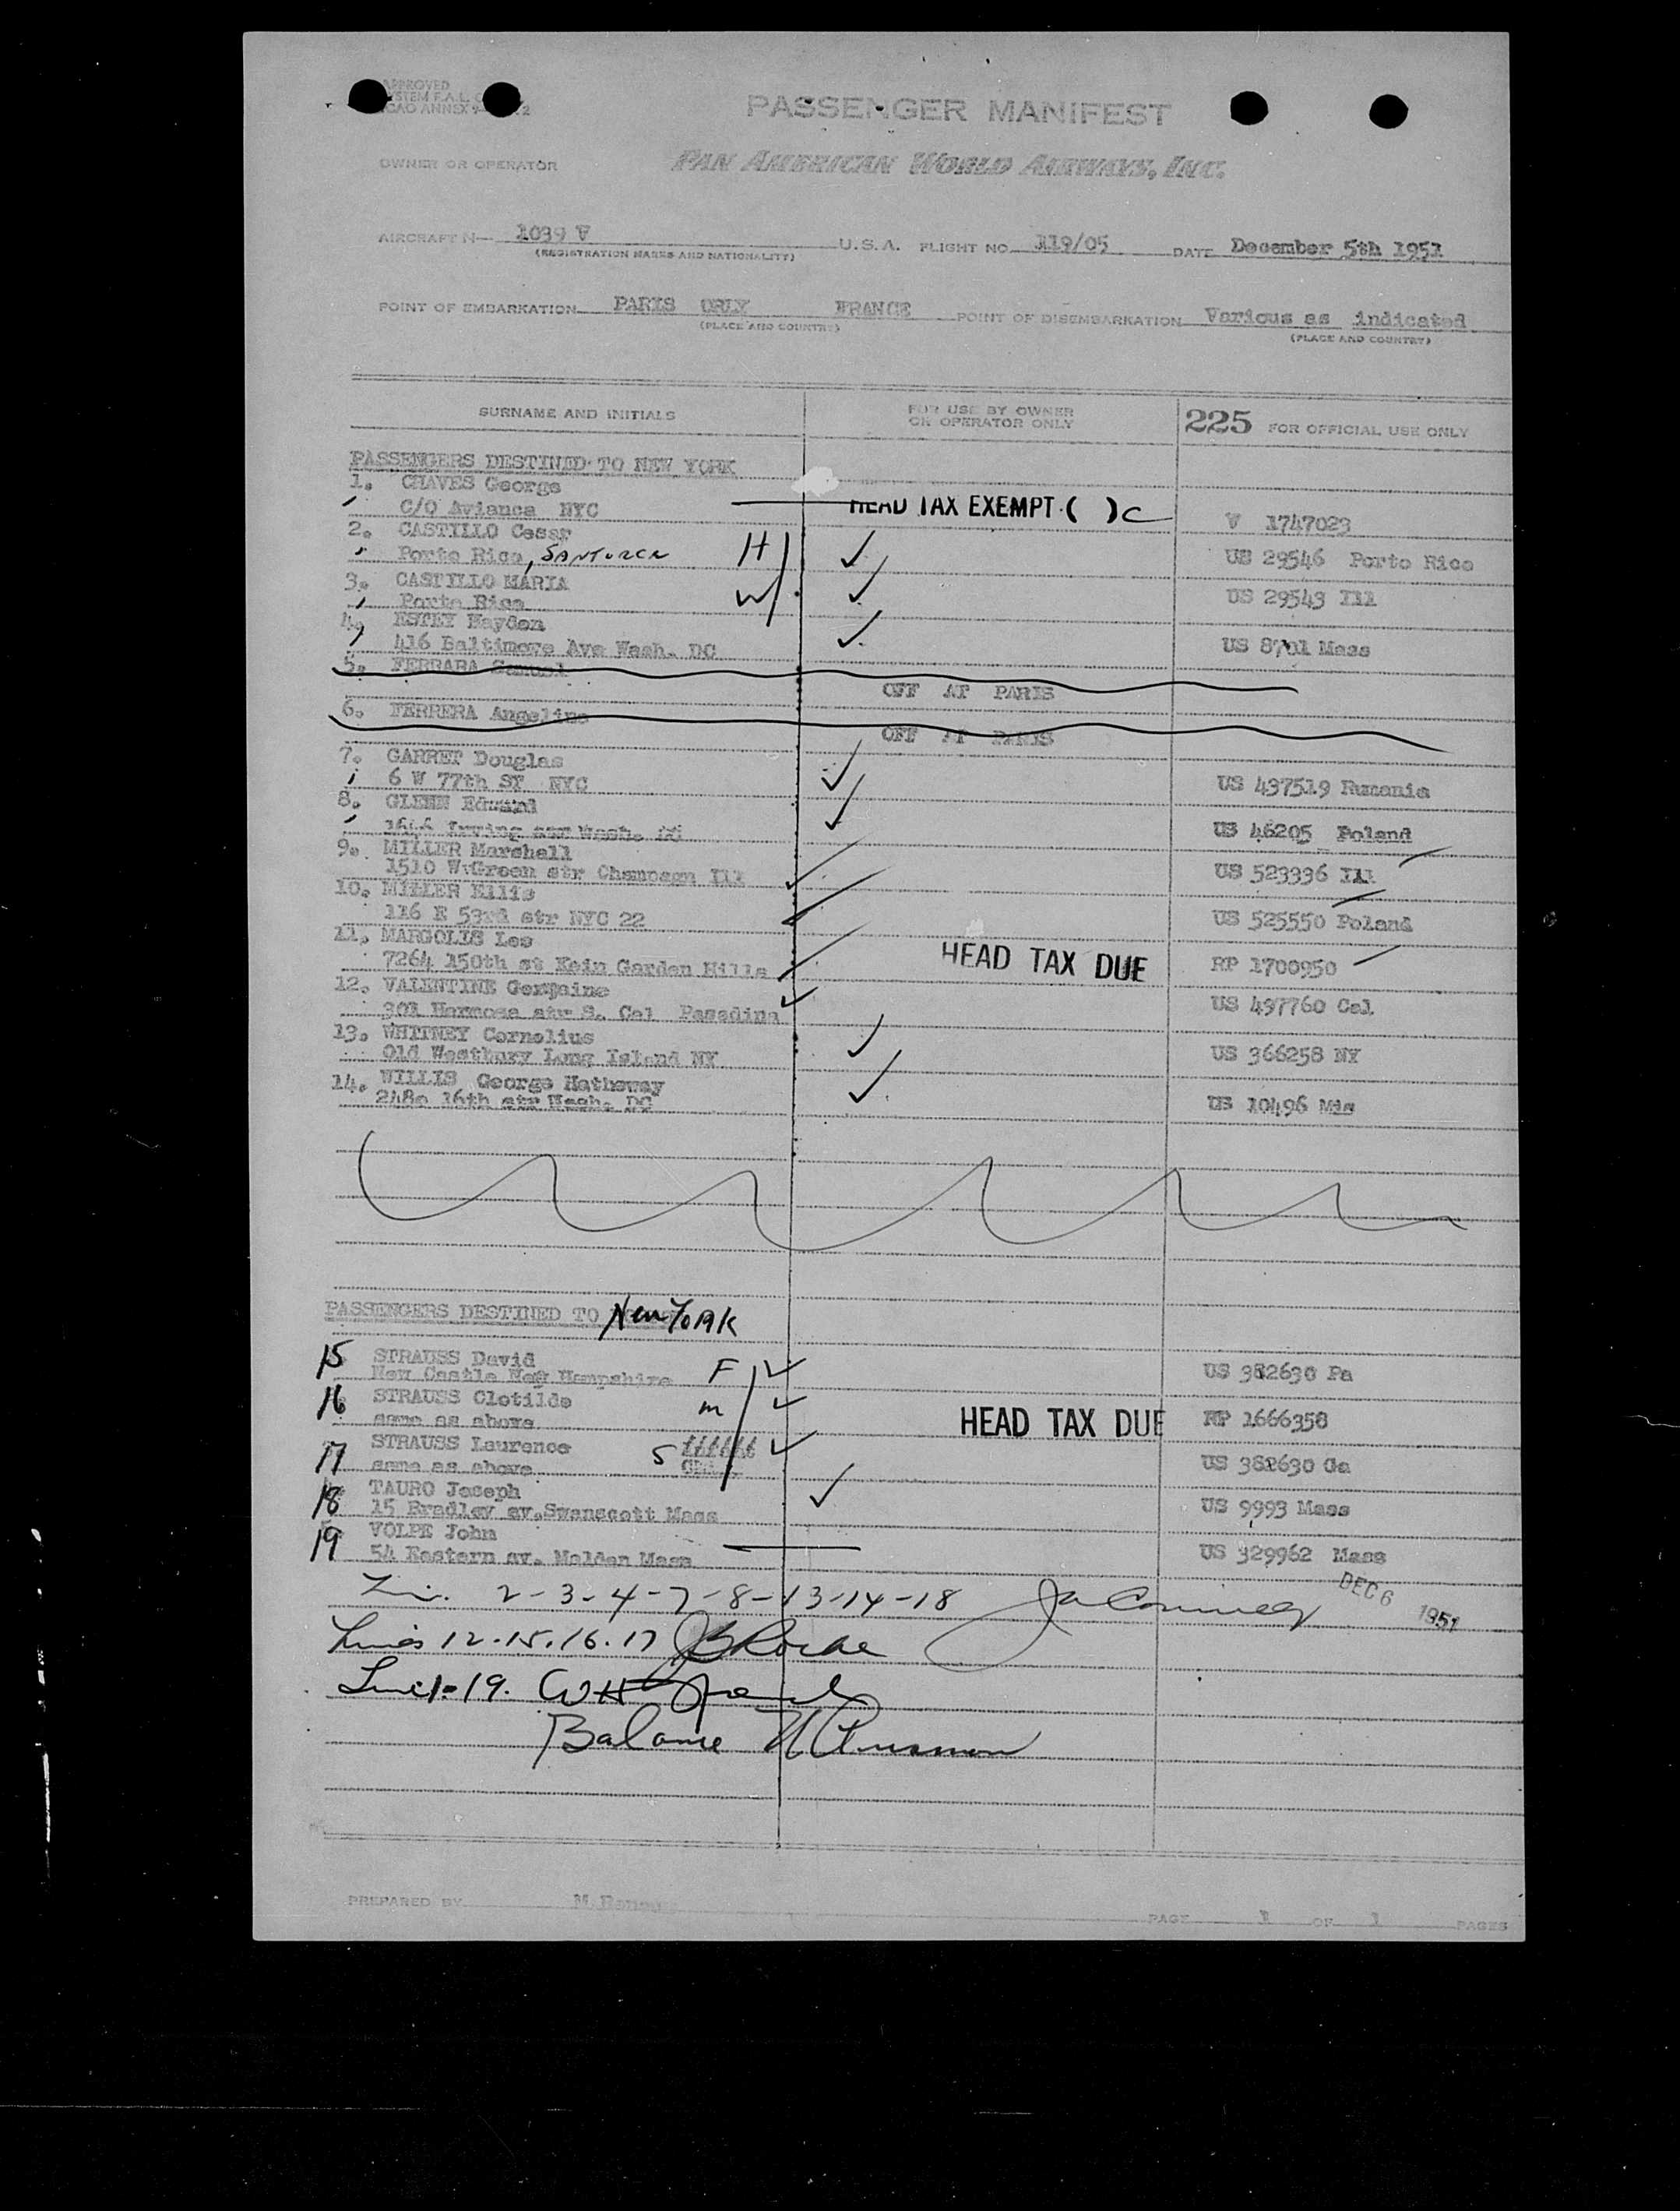 APPROVED
PASSENGER MANIFEST
OWNER OR OPERATOR PAN AMERICAN WORLD AIRWAYS, INC.
AIRCRAFT N 1039 V U.S.A. FLIGHT NO 119/05 DATE December 5th 1951
(REGISTRATION MARKS AND NATIONALITY)
POINT OF EMBARKATION PARIS ORLY FRANCE POINT OF DISEMBARKATION Various as indicated
(PLACE AND COUNTRY) (PLACE AND COUNTRY)
SURNAME AND INITIALS FOR USE BY OWNER OR OPERATOR ONLY 225 FOR OFFICIAL USE ONLY
PASSENGERS DESTINED TO NEW YORK
1. CHAVES George
C/O Avianca NYC HEAD TAX EXEMPT ( ) C V 1747023
2. CASTILLO Cesar
Porto Rico, SANTURCE H US 29546 Porto Rico
3. CASTILLO MARIA
Porto Rico W US 29543 Ill
4. ESTEY Hayden
416 Baltimore Ave Wash. DC US 8701 Mass
5. FERRARA Samuel
OFF AT PARIS
6. FERRERA Angeline
OFF AT PARIS
7. GARRET Douglas
6 W 77th ST NYC US 497519 Rumania
8. GLENN Edmund
Irving str Wash. US 46205 Poland
9. MILLER Marshall
1510 W.Green str Ill US 523336 Ill
10. MILLER Ellis
116 E 53rd str NYC 22 US 525550 Poland
11. MARGOLIS Leo
7264 150th st Garden Hills HEAD TAX DUE RP 1700950
12. VALENTINE Germaine
301 Hermosa str S. Cal Pasadina US 497760 Cal.
13. WHITNEY Cornelius
Old Westbury Long Island NY US 366258 NY
14. WILLIS George Hathaway
16th str Wash. DC US 10496 Mis
PASSENGERS DESTINED TO New York
15 STRAUSS David
New Castle New Hampshire F US 382630 Pa
16 STRAUSS Clotilde
same as above m HEAD TAX DUE RP 1666358
17 STRAUSS Laurence
same as above S US 382630 Ga
18 TAURO Joseph
15 Bradley av.Swanscott Mass US 9993 Mass
19 VOLPE John
54 Eastern av. Malden Mass US 329962 Mass
DEC 6 1951
2-3-4-7-8-13-14-18
Lines 12.15.16.17
Line 1-19.
Balance
PREPARED BY
PAGE 1 OF 1 PAGES